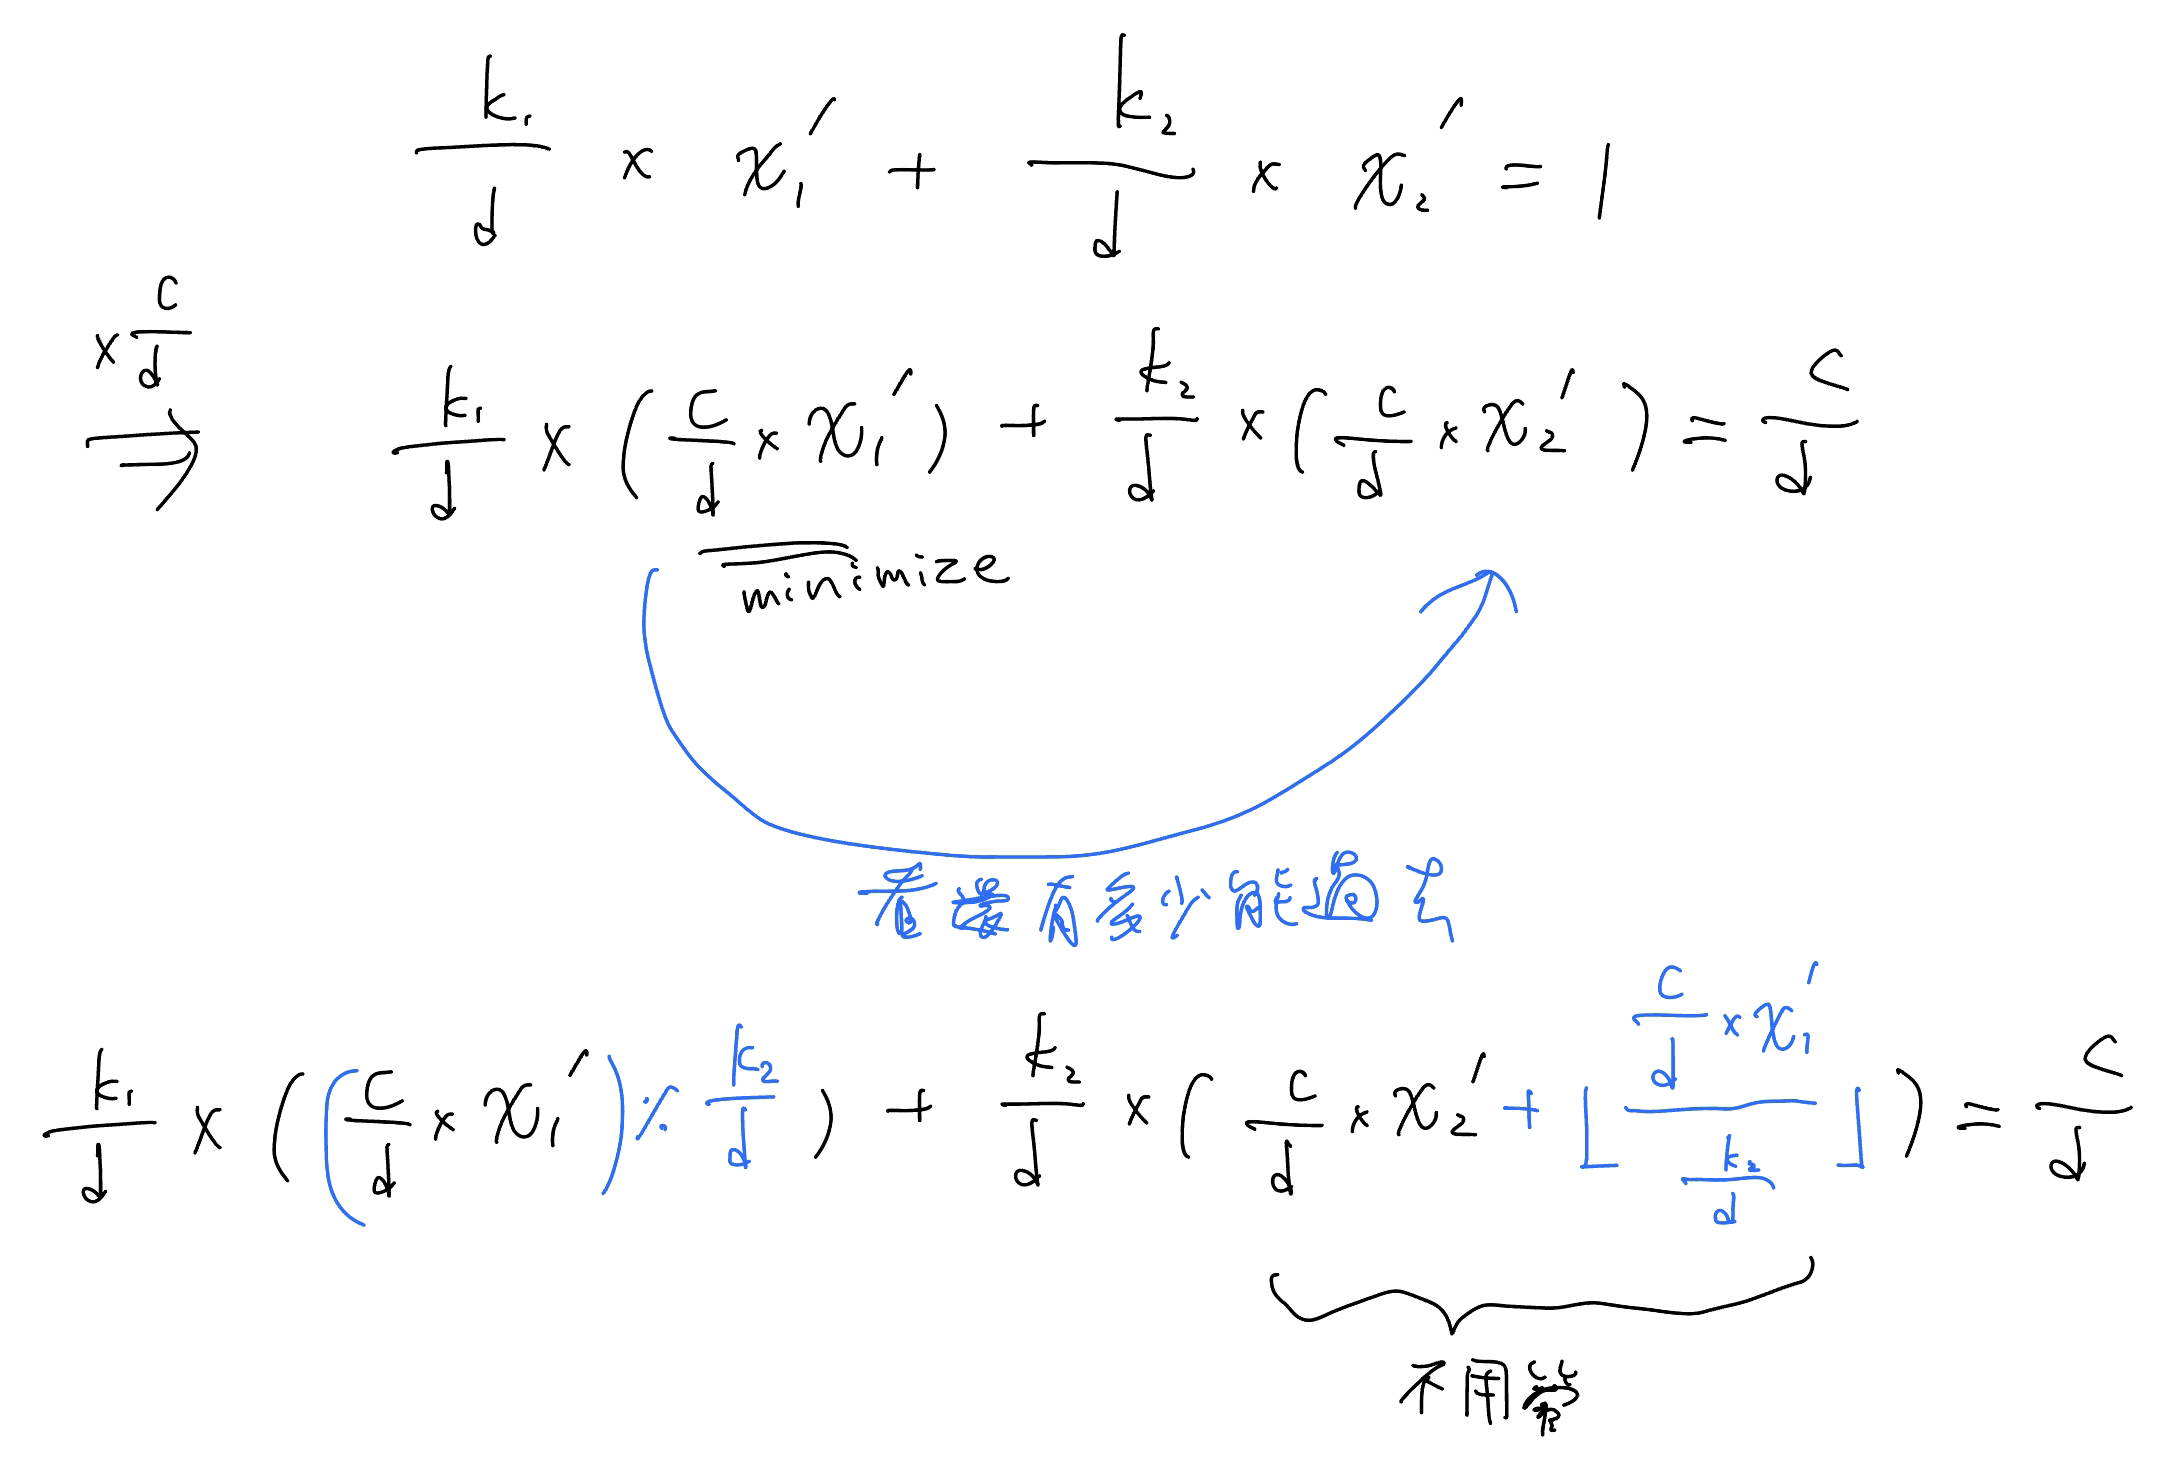 k₁/d × x₁′ + k₂/d × x₂′ = 1
×c/d ⇒ k₁/d × (c/d × x₁′) + k₂/d × (c/d × x₂′) = c/d
minimize
看最有多少能過去
k₁/d × ((c/d × x₁′) % k₂/d) + k₂/d × (c/d × x₂′ + ⌊(c/d × x₁′)/(k₂/d)⌋) = c/d
不用管